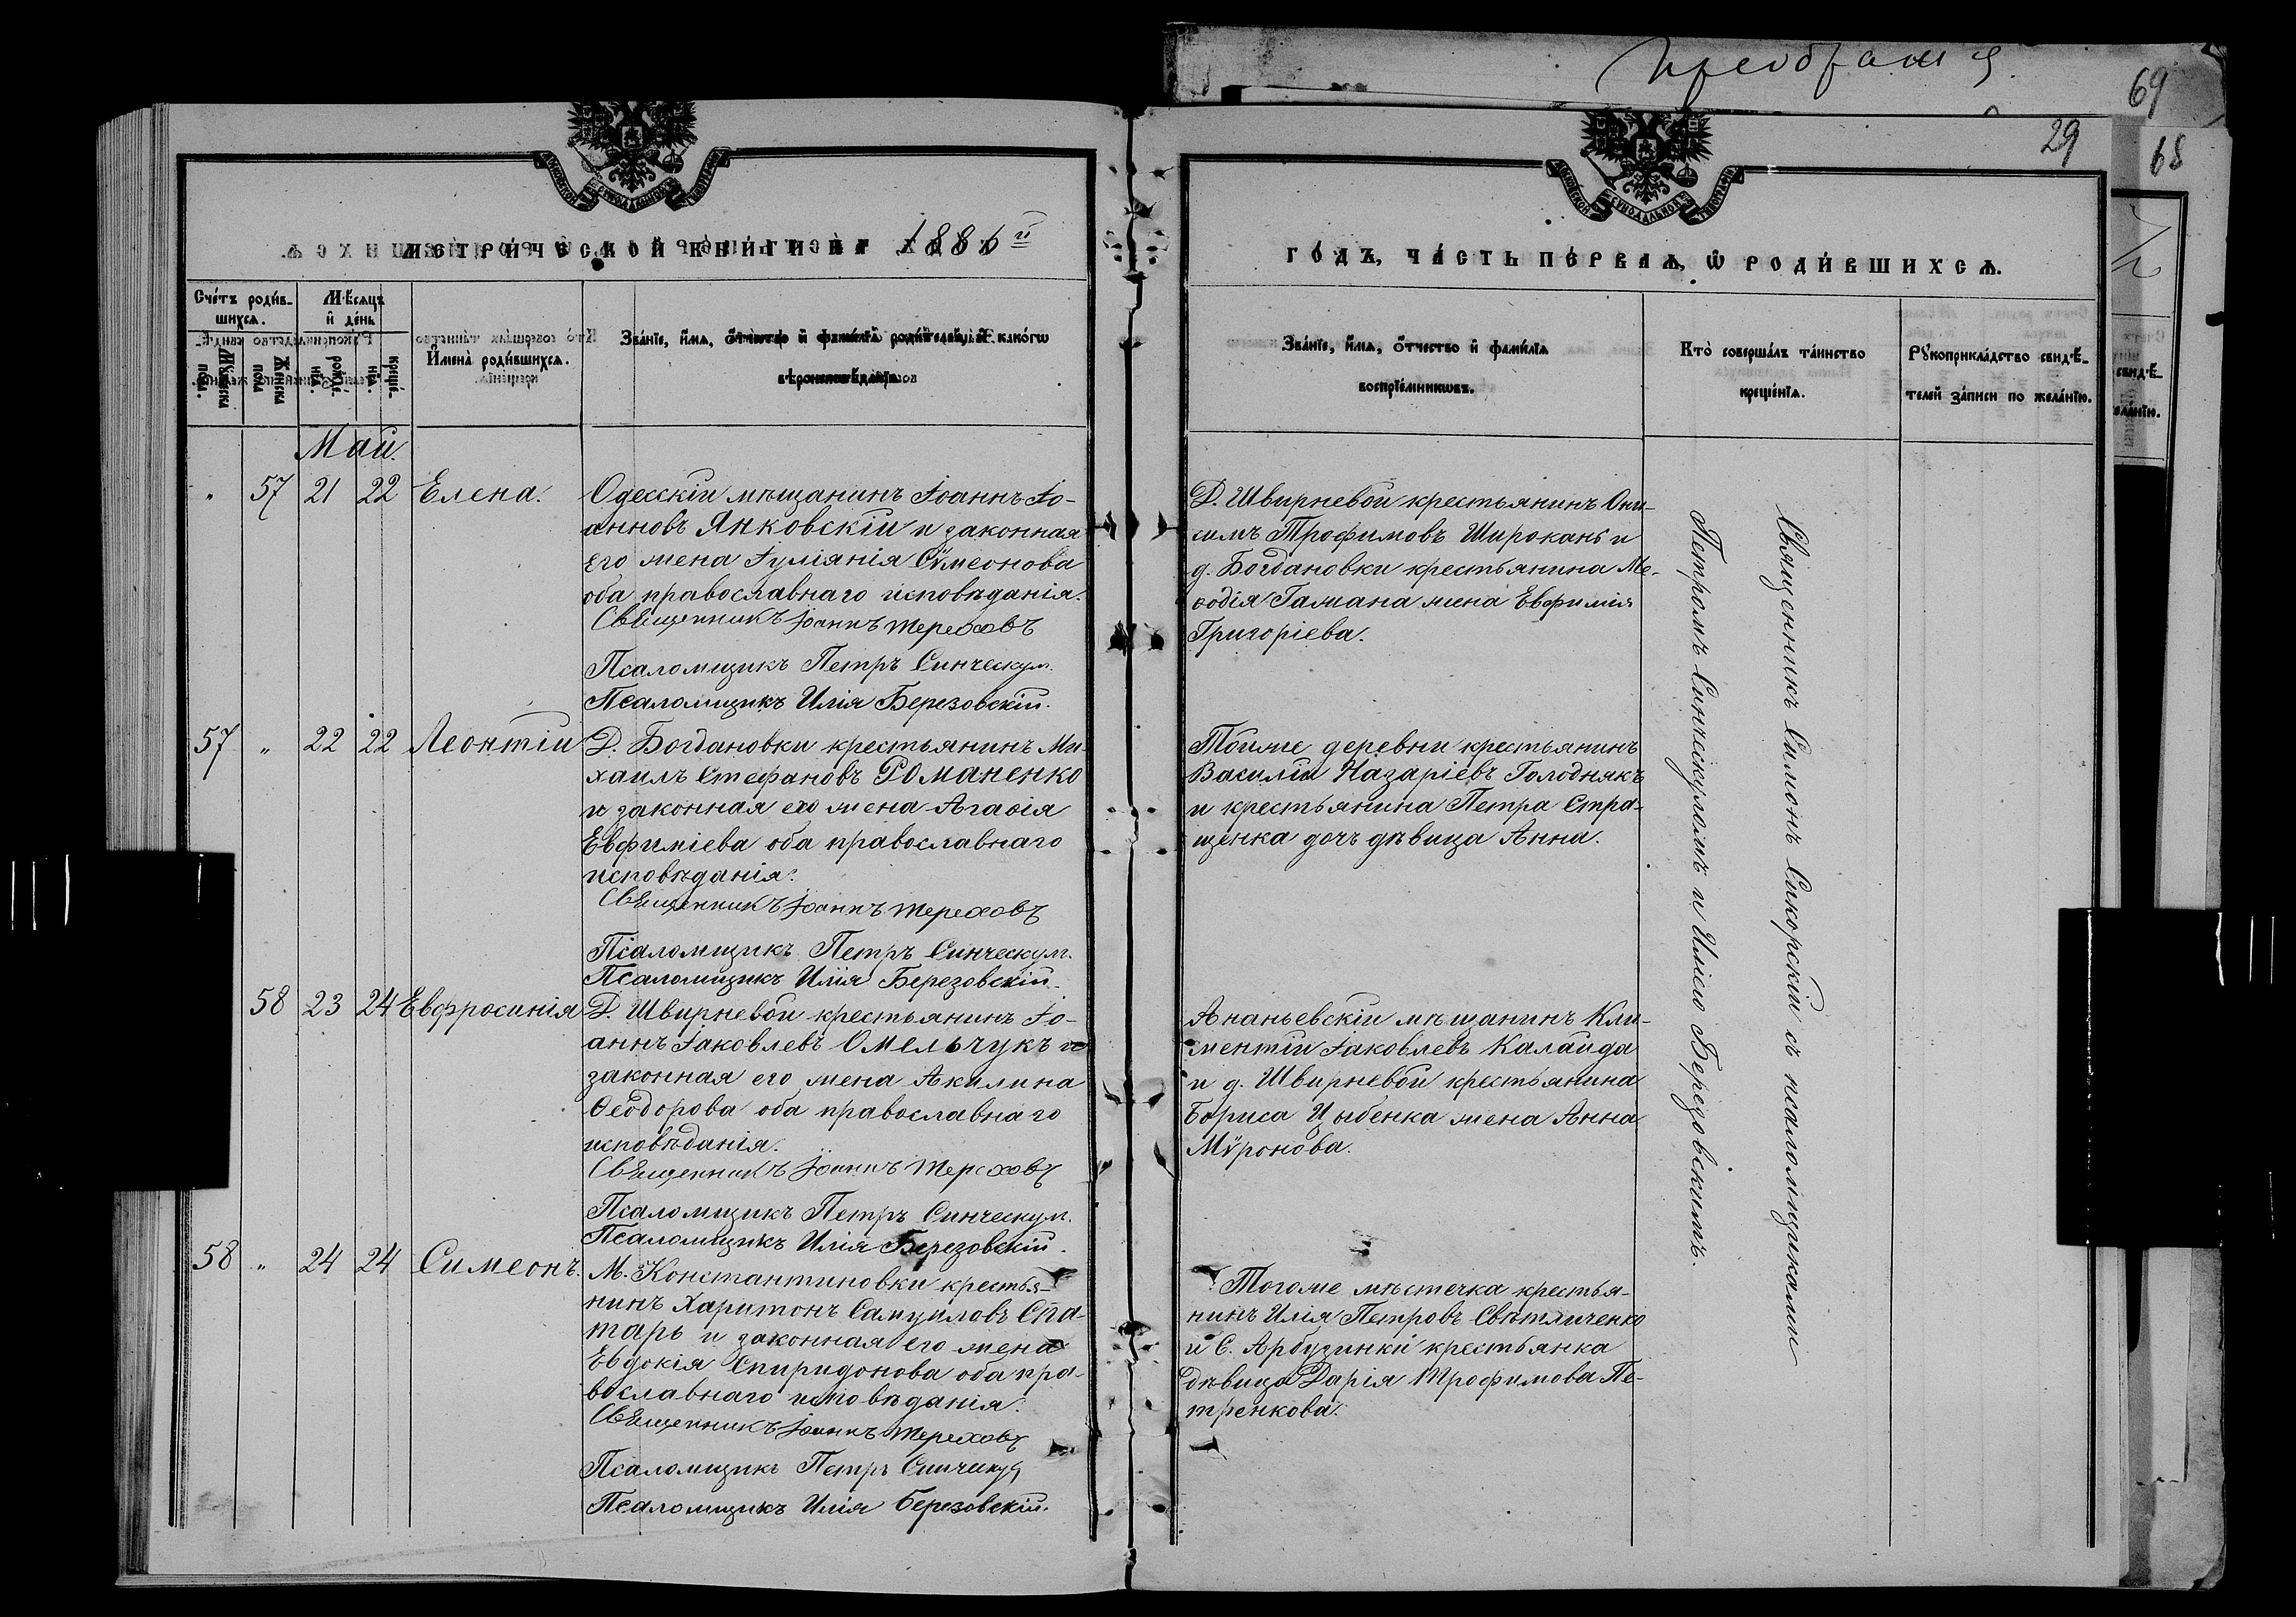 29
69
68
МЕТРИЧЕСКОЙ КНИГИ НА 1886 й
ГОДЪ, ЧАСТЬ ПЕРВАЯ, Ѡ РОДИВШИХСЯ.
Счетъ родившихся.
Мужеска пола.
Женска пола
Мѣсяцъ и день
рожденія.
крещенія.
Имена родившихся.
Званіе, имя, отчество и фамилія родителей, и какого
вѣроисповѣданія.
Званіе, имя, отчество и фамилія
воспріемниковъ.
Кто совершалъ таинство
крещенія.
Рукоприкладство свидѣ-
телей записи по желанію.
Май.
" 57 21 22 Елена.
Одесскій мѣщанинъ Іоаннъ Іо-
анновъ Янковскій и законная
его жена Іуліанія Сѵмеонова
оба православнаго исповѣданія.
Священникъ Іоаннъ Тереховъ
Псаломщикъ Петръ Синческул.
Псаломщикъ Илія Березовскій.
Д. Швырневой крестьянинъ Они-
симъ Трофимовъ Широкань и
д. Богдановки крестьянина Ме-
ѳодія Гамана жена Евфимія
Григоріева.
57 " 22 22 Леонтій
Д. Богдановки крестьянинъ Ми-
хаилъ Стефановъ Романенко
и законная его жена Агаѳія
Евфиміева оба православнаго
исповѣданія.
Священникъ Іоаннъ Тереховъ
Псаломщикъ Петръ Синческул.
Псаломщикъ Илія Березовскій.
Тойже деревни крестьянинъ
Василій Назаріевъ Голоднякъ
и крестьянина Петра Стра-
щенка дочь дѣвица Анна.
58 23 24 Евфросинія
Д. Швырневой крестьянинъ Іо-
аннъ Іаковлевъ Омельчукъ и
законная его жена Акилина
Ѳеодорова оба православнаго
исповѣданія.
Священникъ Іоаннъ Тереховъ
Псаломщикъ Петръ Синческул.
Псаломщикъ Илія Березовскій.
Ананьевскій мѣщанинъ Кли-
ментій Іаковлевъ Калайда
и д. Швырневой крестьянина
Бориса Цыбенка жена Анна
Мѵронова.
58 " 24 24 Симеонъ.
М. Константиновки крестья-
нинъ Харитонъ Самуиловъ Спа-
тарь и законная его жена
Евдокія Спиридонова оба пра-
вославнаго исповѣданія.
Священникъ Іоаннъ Тереховъ
Псаломщикъ Петръ
Псаломщикъ Илія Березовскій.
Тогоже мѣстечка крестья-
нинъ Илія Петровъ Свѣтличенко
и С. Арбузинки крестьянка
дѣвица Дарія Трофимова Пе-
тренкова.
Священникъ Симонъ Сикорскій съ псаломщиками
Петромъ Синческуломъ и Иліею Березовскимъ.